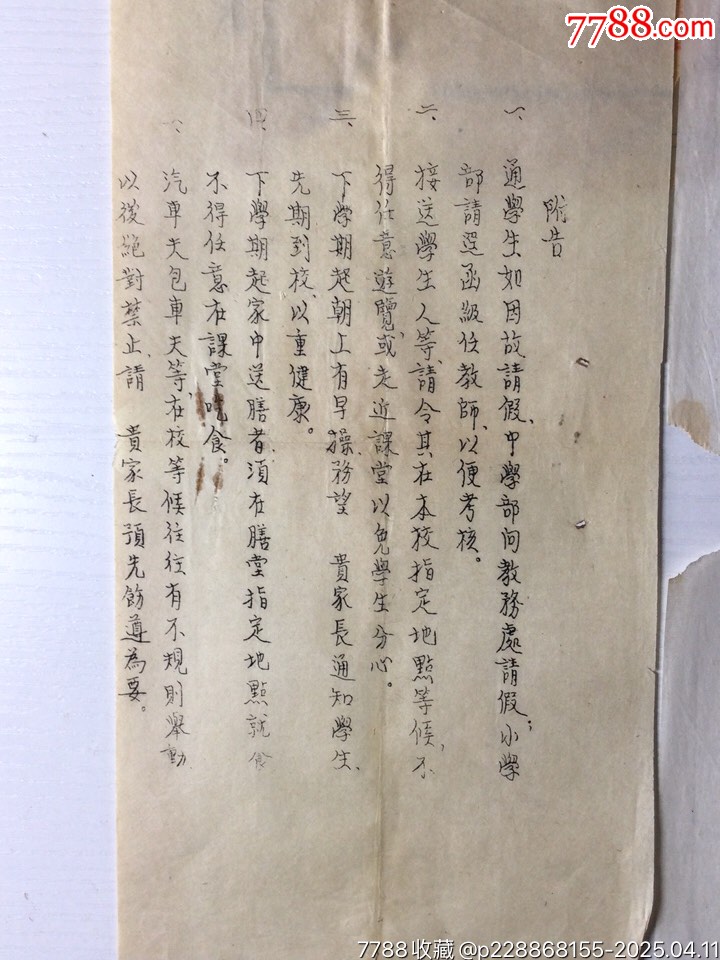 7788.com
附告
一、通學生如因故請假、中學部向教務處請假；小學
部請逕函級任教師、以便考核。
二、接送學生人等、請令其在本校指定地點等候、不
得任意遊覽、或走近課堂以免學生分心。
三、下學期起朝上有早操、務望　貴家長通知學生、
先期到校、以重健康。
四、下學期起家中送膳者、須在膳堂指定地點就食
不得任意在課堂吃食。
一、汽車夫包車夫等、在校等候往往有不規則舉動
以後絕對禁止、請　貴家長預先飭遵為要。
7788收藏 @p228868155-2025.04.11